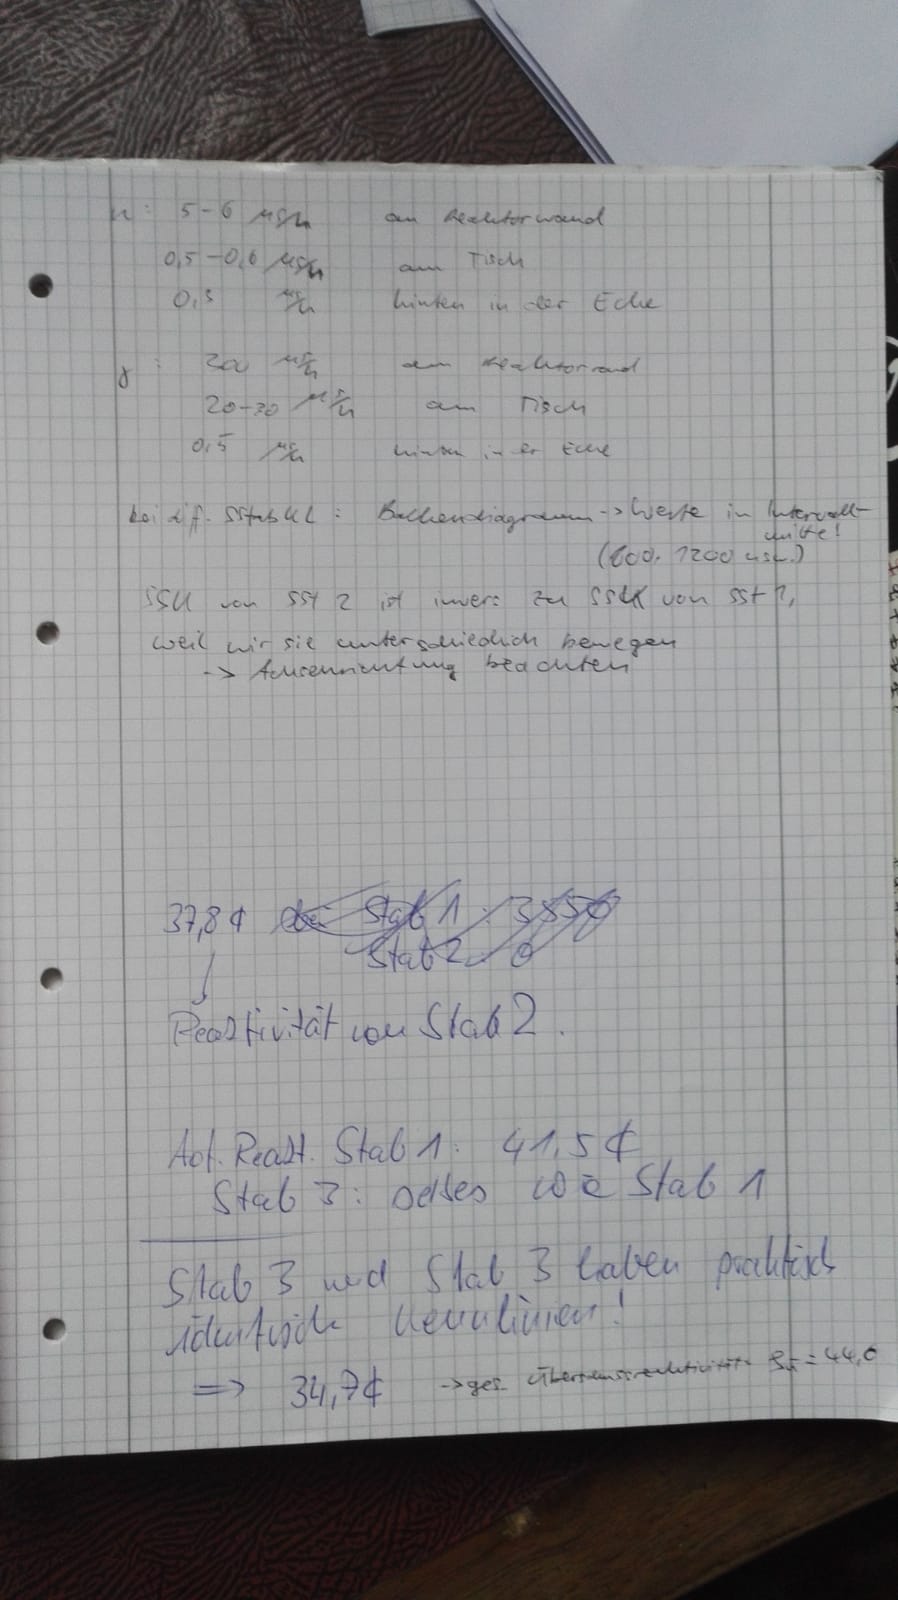 n: 5-6 µS/h am Reaktorwand
0,5-0,6 µS/h am Tisch
0,3 µS/h hinten in der Ecke
γ: 300 µS/h am Reaktorrand
20-30 µS/h am Tisch
0,5 µS/h hinten in er Ecke
bei dif. SStabKL: Balkendiagramm -> Werte in Intervall-
mitte!
(600, 1200 usw.)
SSK von SSt 2 ist invers zu SSK von SSt
weil wir sie unterschiedlich bewegen
-> Achsenrichtung beachten
37,8 ¢
Reaktivität von Stab 2.
Stab 1: 41,5 ¢
Stab 3: selbes wie Stab 1
Stab 3 und Stab 3 haben praktisch
identische Kennlinien!
=> 34,7 ¢ -> ges. = 44,0